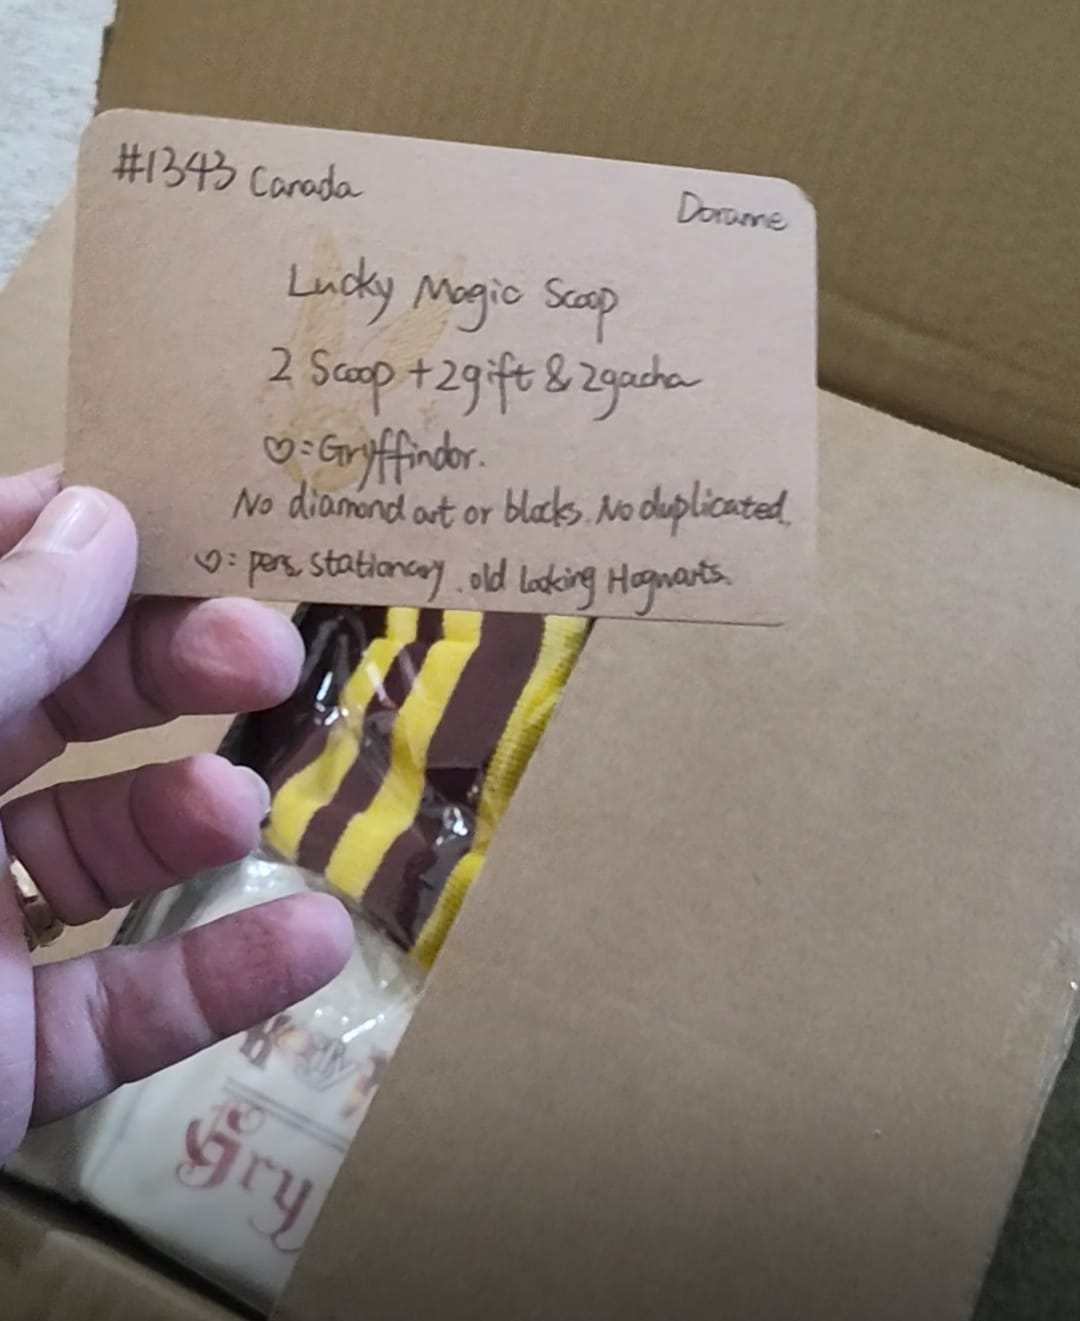 #1343 Canada
Doranne
Lucky Magic Scoop
2 Scoop + 2gift & 2gacha
♡:=Gryffindor.
No diamond art or blocks. No duplicated.
♡: pens, stationary. old looking Hogwarts.
Gry